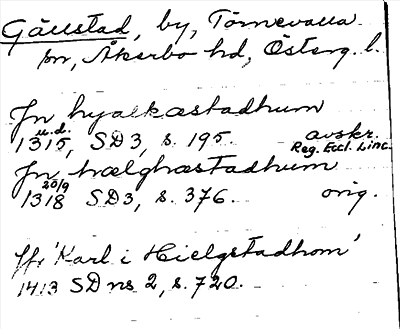 Gällstad, by, Törnevalla
sn, Åkerbo hd, Österg. l.
Jn hyalkæstadhum
u.d.
1315, SD3, s. 195. avskr.
Reg. Eccl. Linc.
Jn hælghæstadhum
20/9
1318 SD3, s. 376. orig.
ffr 'Karl i Hielgstadhom'
1413 SD ns 2, s. 720.